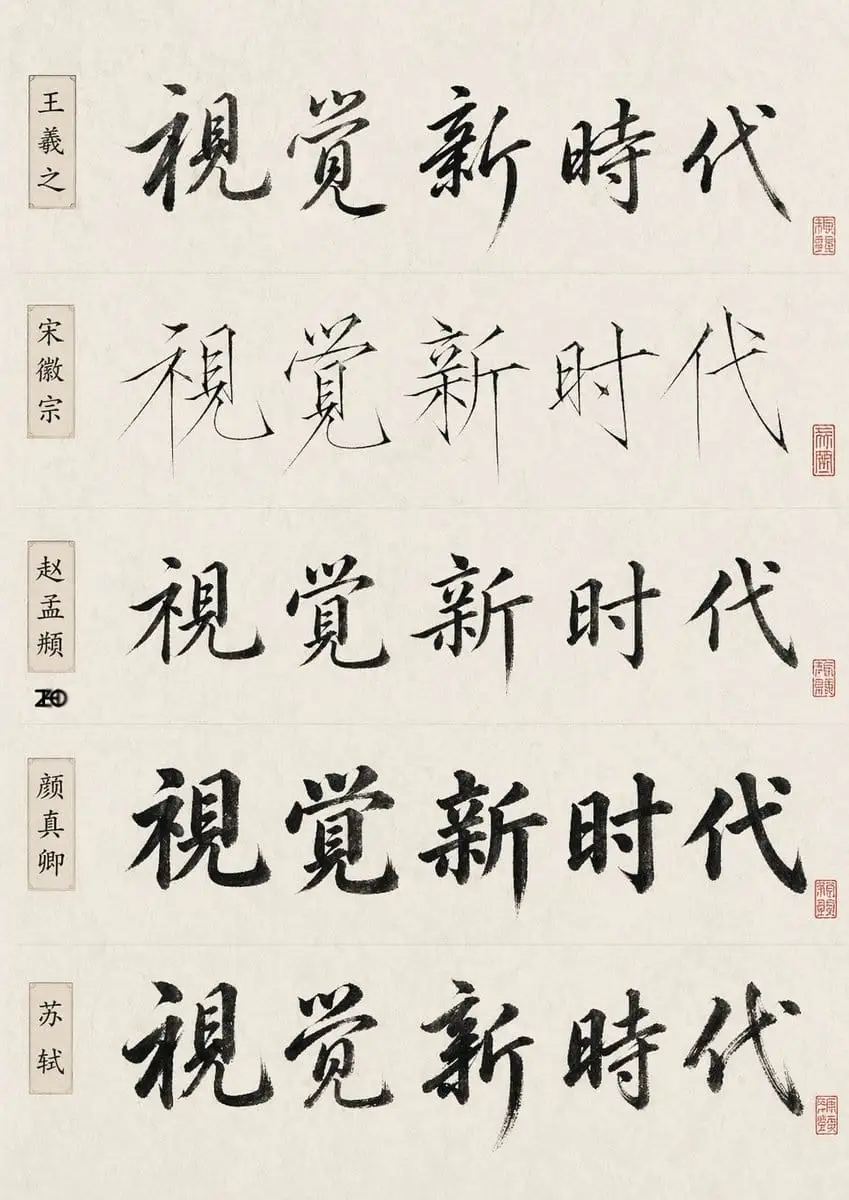 王羲之
視覚新時代
宋徽宗
視覺新时代
赵孟頫
視覺新时代
颜真卿
視覺新时代
苏轼
視覚新時代